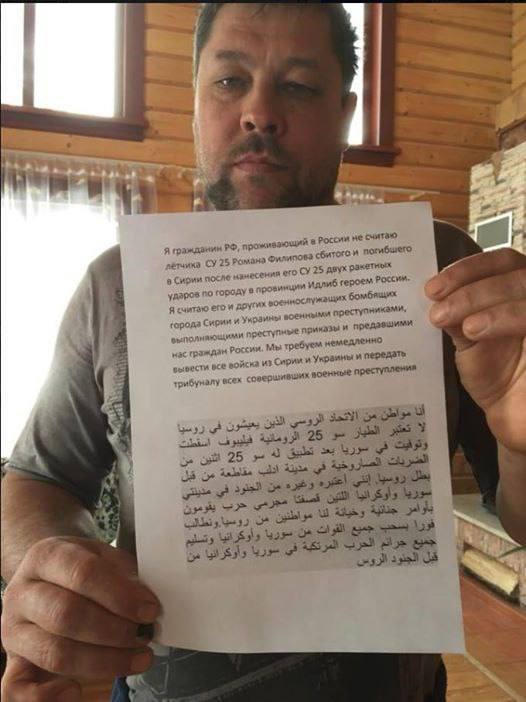 Я гражданин РФ, проживающий в России не считаю
лётчика СУ 25 Романа Филипова сбитого и погибшего
в Сирии после нанесения его СУ 25 двух ракетных
ударов по городу в провинции Идлиб героем России.
Я считаю его и других военнослужащих бомбящих
города Сирии и Украины военными преступниками,
выполняющими преступные приказы и предавшими
нас граждан России. Мы требуем немедленно
вывести все войска из Сирии и Украины и передать
трибуналу всех совершивших военные преступления
أنا مواطن من الاتحاد الروسي الذين يعيشون في روسيا
لا تعتبر الطيار سو 25 الرومانية فيليبوف اسقطت
وتوفيت في سوريا بعد تطبيق له سو 25 اثنين من
الضربات الصاروخية في مدينة ادلب مقاطعة من قبل
بطل روسيا إنني أعتبره وغيره من الجنود في مدينتي
سوريا وأوكرانيا اللتين قصفتا مجرمي حرب يقومون
بأوامر جنائية وخيانة لنا مواطنين من روسيا.ونطالب
فورا بسحب جميع القوات من سوريا وأوكرانيا وتسليم
جميع جرائم الحرب المرتكبة في سوريا وأوكرانيا من
قبل الجنود الروس